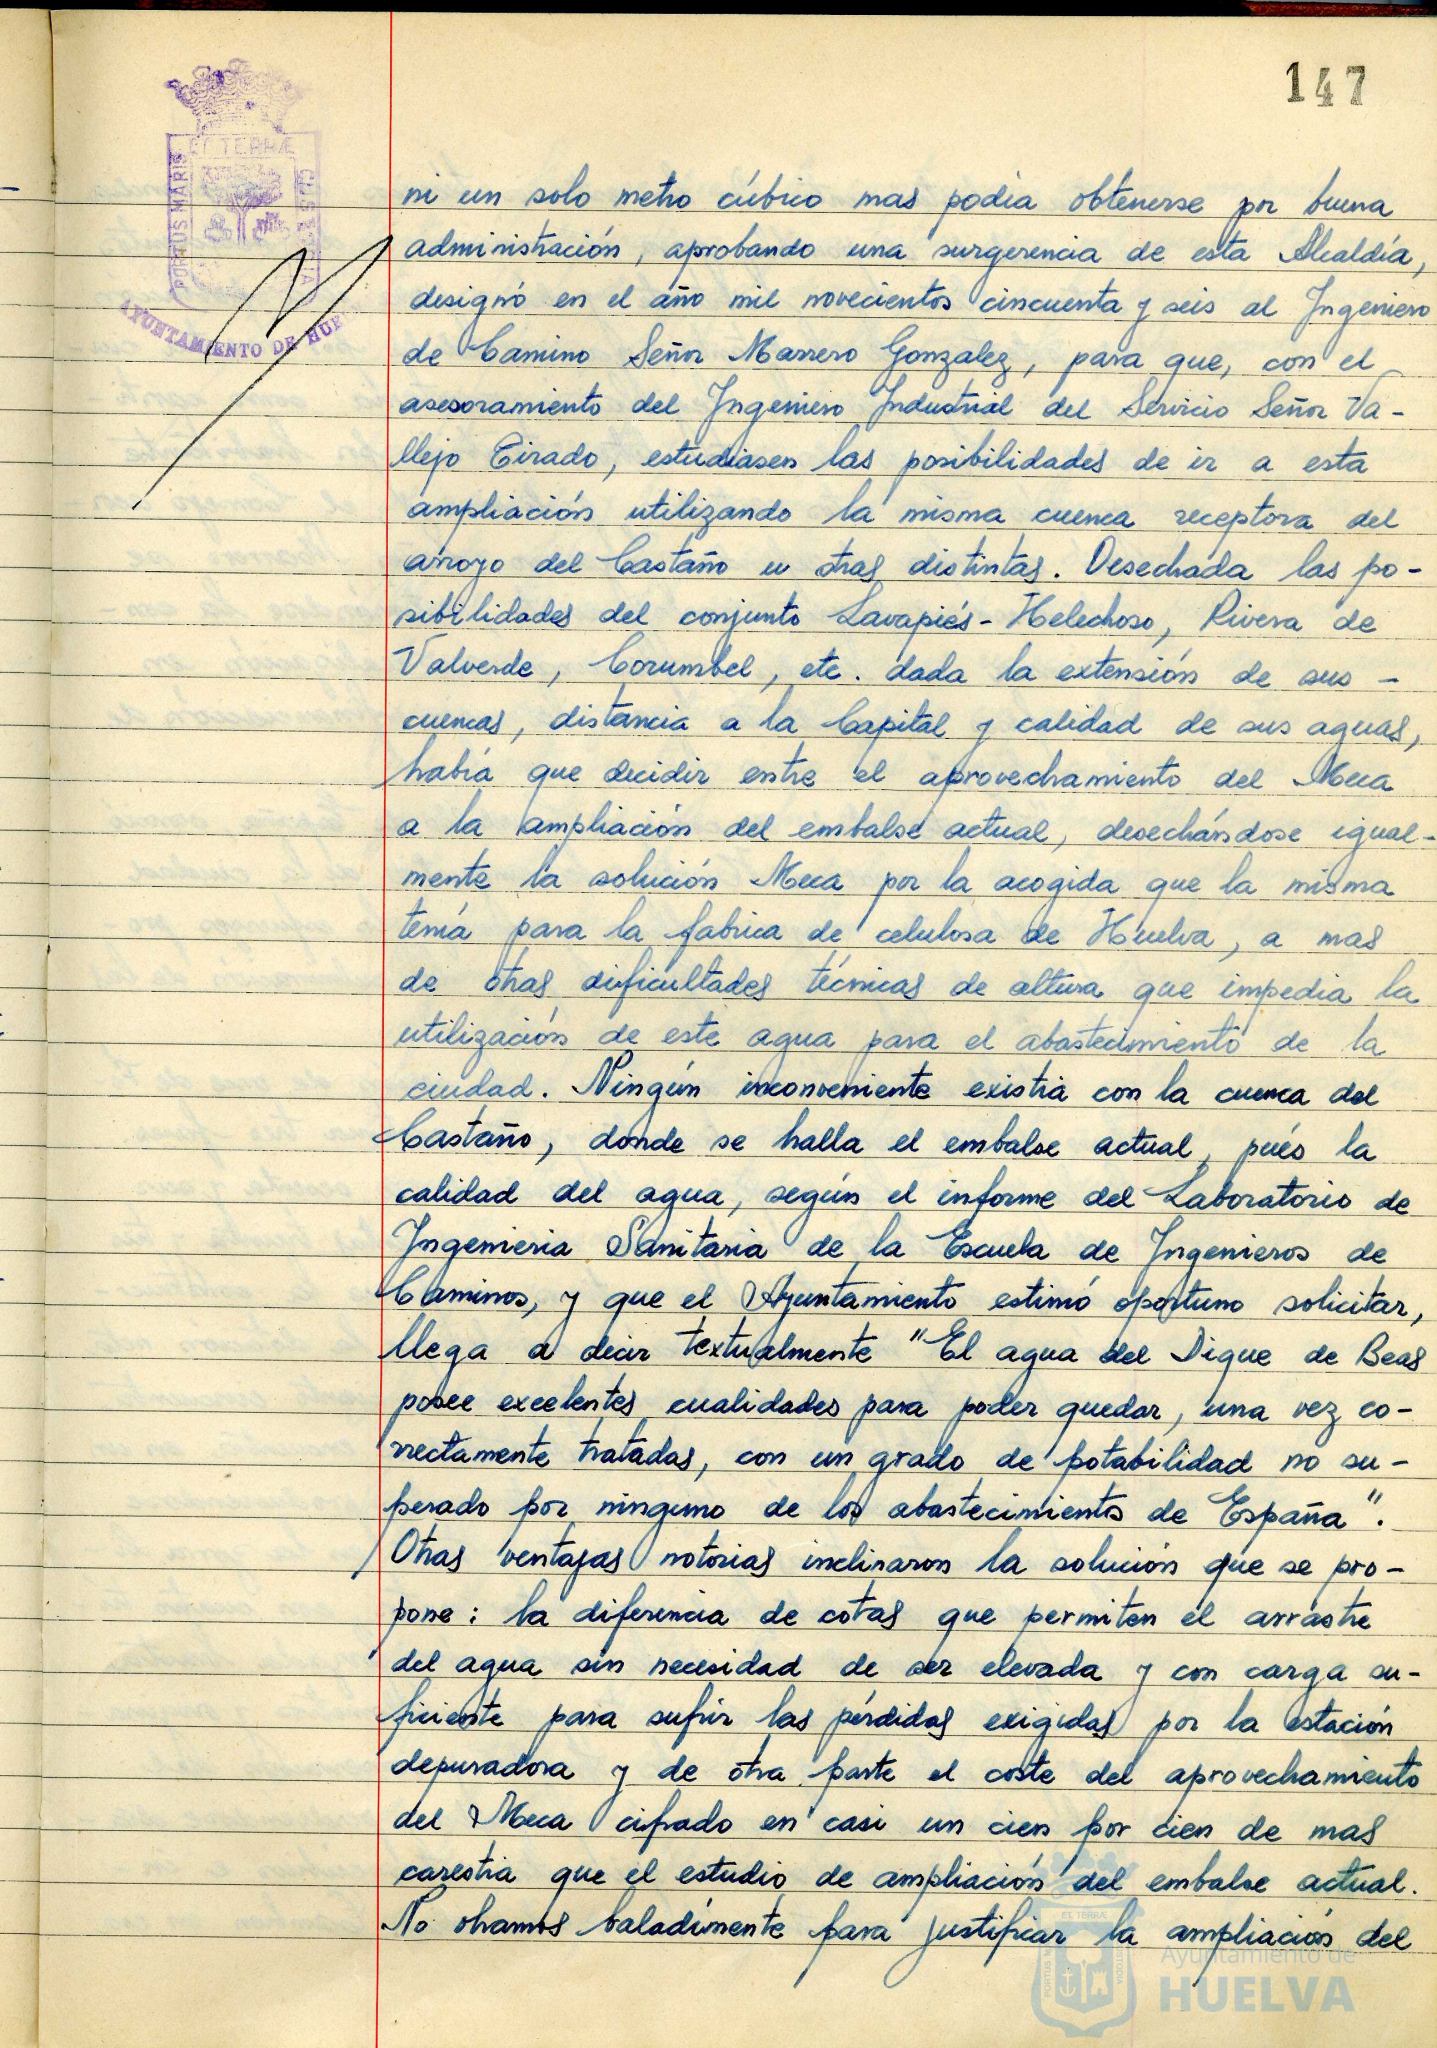 147
ET TERRÆ
PORTUS MARIS
CUSTODIA
AYUNTAMIENTO DE HUE
ni un solo metro cúbico mas podia obtenerse por buena
administración, aprobando una surgerencia de esta Alcaldía,
designó en el año mil novecientos cincuenta y seis al Ingeniero
de Camino Señor Marrero Gonzalez, para que, con el
asesoramiento del Ingeniero Industrial del Servicio Señor Va-
llejo Tirado, estudiasen las posibilidades de ir a esta
ampliación utilizando la misma cuenca receptora del
arroyo del Castaño u otras distintas. Desechada las po-
sibilidades del conjunto Lavapiés-Helechoso, Rivera de
Valverde, Corumbel, etc. dada la extensión de sus -
cuencas, distancia a la Capital y calidad de sus aguas,
habia que decidir entre el aprovechamiento del Meca
a la ampliación del embalse actual, desechándose igual-
mente la solución Meca por la acogida que la misma
tenía para la fabrica de celulosa de Huelva, a mas
de otras dificultades técnicas de altura que impedia la
utilización de este agua para el abastecimiento de la
ciudad. Ningún inconveniente existia con la cuenca del
Castaño, donde se halla el embalse actual, pués la
calidad del agua, según el informe del Laboratorio de
Ingenieria Sanitaria de la Escuela de Ingenieros de
Caminos, y que el Ayuntamiento estimó oportuno solicitar,
llega a decir textualmente "El agua del Dique de Beas
posee excelentes cualidades para poder quedar, una vez co-
rrectamente tratadas, con un grado de potabilidad no su-
perado por ninguno de los abastecimientos de España".
Otras ventajas notorias inclinaron la solución que se pro-
pone: la diferencia de cotas que permiten el arrastre
del agua sin necesidad de ser elevada y con carga su-
ficiente para sufrir las pérdidas exigidas por la estación
depuradora y de otra parte el coste del aprovechamiento
del Meca cifrado en casi un cien por cien de mas
carestia que el estudio de ampliación del embalse actual.
No obramos baladimente para justificar la ampliación del
Ayuntamiento de
HUELVA